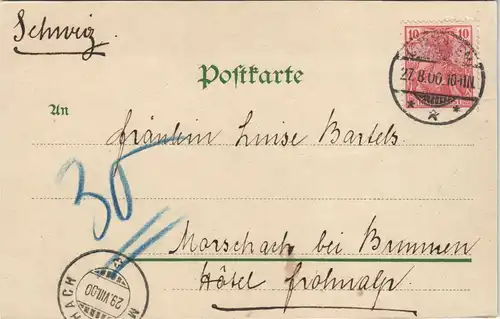 Schweiz.
10 10
27.8.00.10-11N.
Postkarte
An
Fräulein Luise Bartels
30
Morschach bei Brunnen
Hôtel Frohnalp.
29.VIII.00